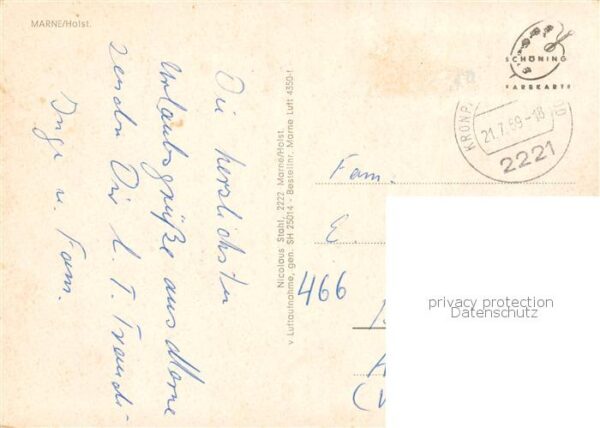 MARNE/Holst.
Die herzlichsten
Urlaubsgrüße aus Marne
senden Dir l. T. Traudi
Inge u. Fam.
Nicolaus Stahl, 2222 Marne/Holst.
v Luftaufnahme, gen. SH 25014 - Bestellnr. Marne Luft 4350-1
SCHÖNING
FARBKARTE
KRONP
21.7.69-18
2221
Fam.
E.
466
privacy protection
Datenschutz